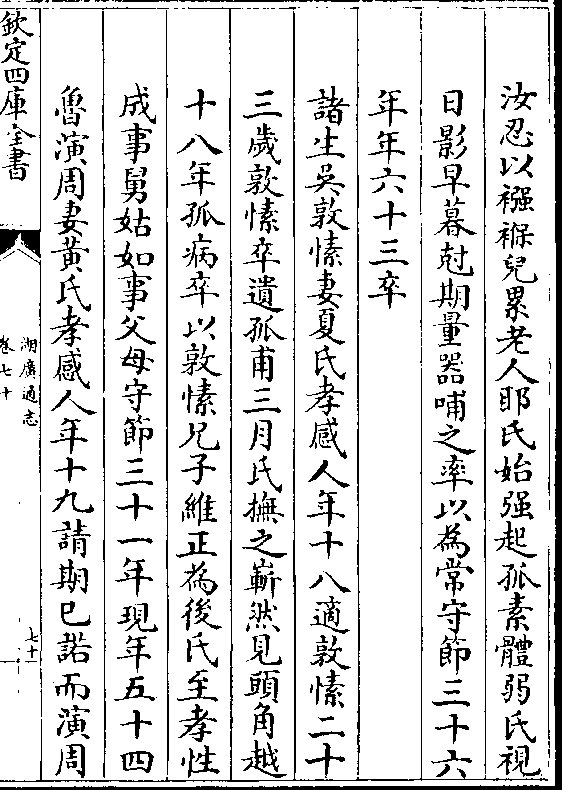 汝忍以襁褓兒累老人耶氏始强起孤素體弱氏視
日影早暮尅期量器哺之率以為常守節三十六
年年六十三卒
諸生吳敦愫妻夏氏孝感人年十八適敦愫二十
三歲敦愫卒遺孤甫三月氏撫之嶄然見頭角越
十八年孤病卒以敦愫兄子維正為後氏至孝性
成事舅姑如事父母守節三十一年現年五十四
魯演周妻黃氏孝感人年十九請期已諾而演周
欽定四庫全書
湖廣通志
卷七十
七十一